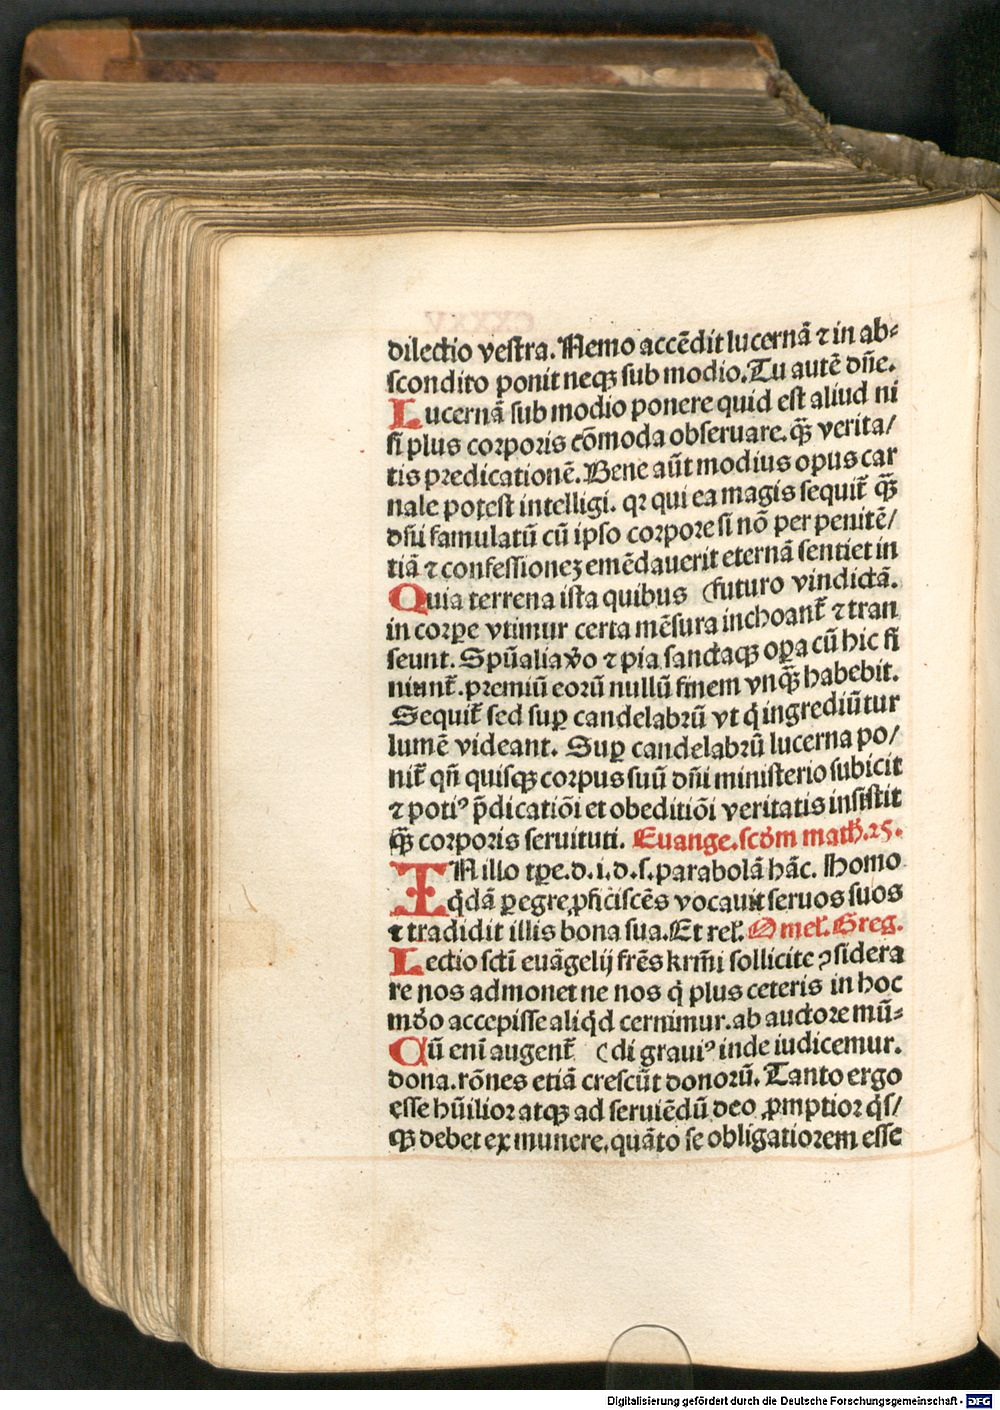 dilectio vestra. Nemo accēdit lucernā ⁊ in ab⸗
scondito ponit neqꝫ sub modio. Tu autē dn̄e.
Lucernā sub modio ponere quid est aliud ni
si plus corporis cōmoda obseruare. qꝫ̄ verita/
tis predicationē. Bene aūt modius opus car
nale potest intelligi. qꝛ qui ea magis sequit̄ qꝫ̄
dn̄i famulatū cū ipso corpore si nō per penitē/
tiā ⁊ confessioneꝫ emēdauerit eternā sentiet in
Quia terrena ista quibus (futuro vindictā.
in corꝑe vtimur certa mēsura inchoant̄ ⁊ tran
seunt. Spūalia v̆o ⁊ pia sanctaqꝫ oꝑa cū hic fi
niunt̄. premiū eorū nullū finem vnqꝫ̄ habebit.
Sequit̄ sed suꝑ candelabrū vt q̇ ingrediūtur
lumē videant. Suꝑ candelabrū lucerna po/
nit̄ qn̄ quisqꝫ corpus suū dn̄i ministerio subicit
⁊ potiꝰ p̄dicatiōi et obeditiōi veritatis insistit
qꝫ̄ corporis seruituti. Euange. scd̄m math. 25.
IN illo tꝑe. d. i. d. s. parabolā hāc. Homo
q̇dā ꝑegre ꝓficiscēs vocauit seruos suos
⁊ tradidit illis bona sua. Et rel̄. Omel̄. Greg.
Lectio sctī euāgelij frēs krm̄i sollicite ꝯsidera
re nos admonet ne nos q̇ plus ceteris in hoc
mūdo accepisse aliq̇d cernimur. ab auctore mū⸗
Cū enī augent̄ (di grauiꝰ inde iudicemur.
dona. rōnes etiā crescūt donorū. Tanto ergo
esse hūilior atqꝫ ad seruiēdū deo ꝓmptior q̇s/
qꝫ debet ex munere. quāto se obligatiorem esse
Digitalisierung gefördert durch die Deutsche Forschungsgemeinschaft - DFG